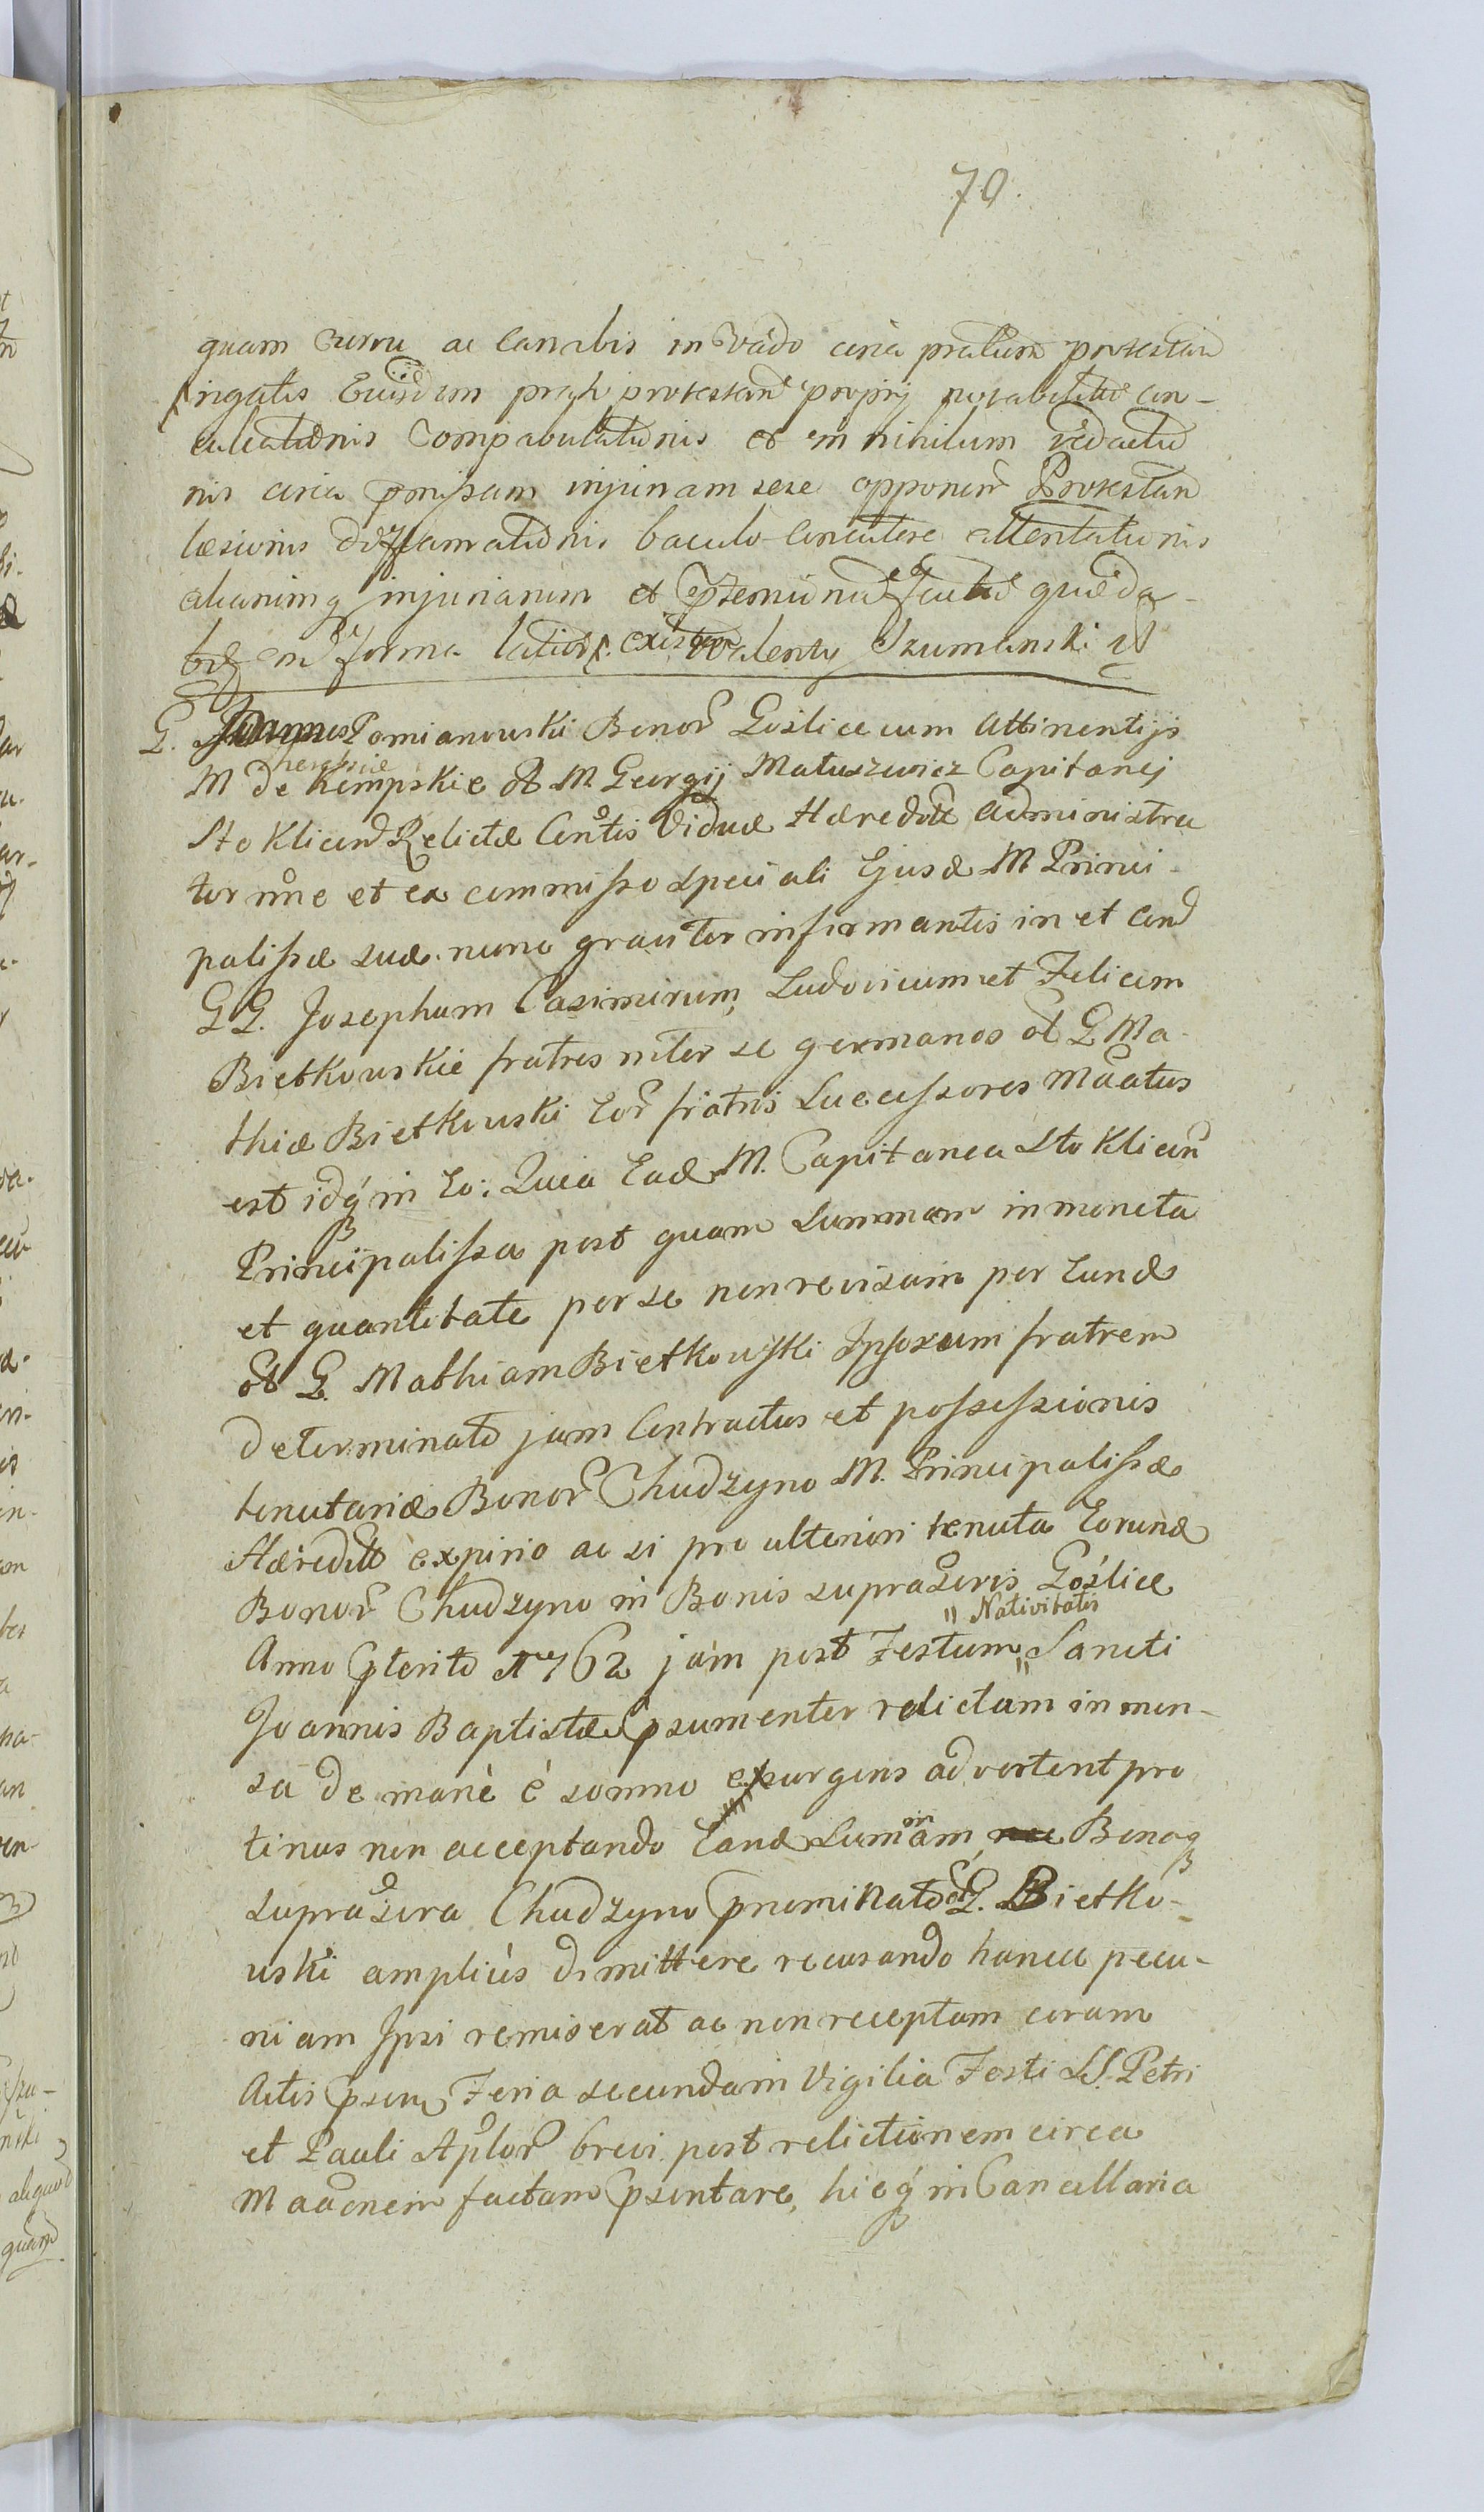 70.
quam curru ac canabis in vado circa pratum protestan
Eiusdem prati protestan proprij notabilit con-
culcationis compabulationis et in nihilum redactio
nis circa pmissam injuriam sese opponen Protestan
læsionis diffamationis baculo concutere attentationis
aliarumq injuriarum et quæda-
in forma latiori Walenty Szumanski
G. Joannes Pomianowski Bonor Goślice cum attinentijs
M de Kempskie ol M Georgij Matuszewicz Capitanej
Stoklicen Relictæ Contis Viduæ Hæredit administra
tor nne et ex commisso speciali Ejusd M Princi-
palissæ suæ nunc graviter infirmantis in et con
GG. Josephum Casimirum, Ludovicum et Felicem
Bietkowskie fratres inter se germanos ol G Ma-
thiæ Bietkowski Eor fratris Successores Maatus
est idq in Eo: Quia Ead M. Capitanea Stoklicen
Principalissa post quam summam in moneta
et quantitate per se non revisam per Eund
ol G. Mathiam Bietkowski Ipsorum fratrem
determinato jam Contractus et possessionis
tenutariæ Bonor Chudzyno M. Principalissæ
Hæredit expirio ac si pro ulteriori tenuta Eorund
Bonor Chudzyno in Bonis supraScris Goślice
" Nativitatis
Anno pterito 1762 jam post Festum " Sancti
Joannis Baptistæ psumenter relictam in men-
sa de manè è somno exsurgens advertent pro
tinus non acceptando Eand Summam, Bonaq
supraScra Chudzyno pnominato ol G. Bietko-
wski ampliùs dimittere recusando hancce pecu-
niam Ipsi remiserat ac non receptam coram
Actis psen Feria secunda in Vigilia Festi SS. Petri
et Pauli Aplor brevi post relictionem circa
Maõnem factam psentare, hicq in Cancellaria